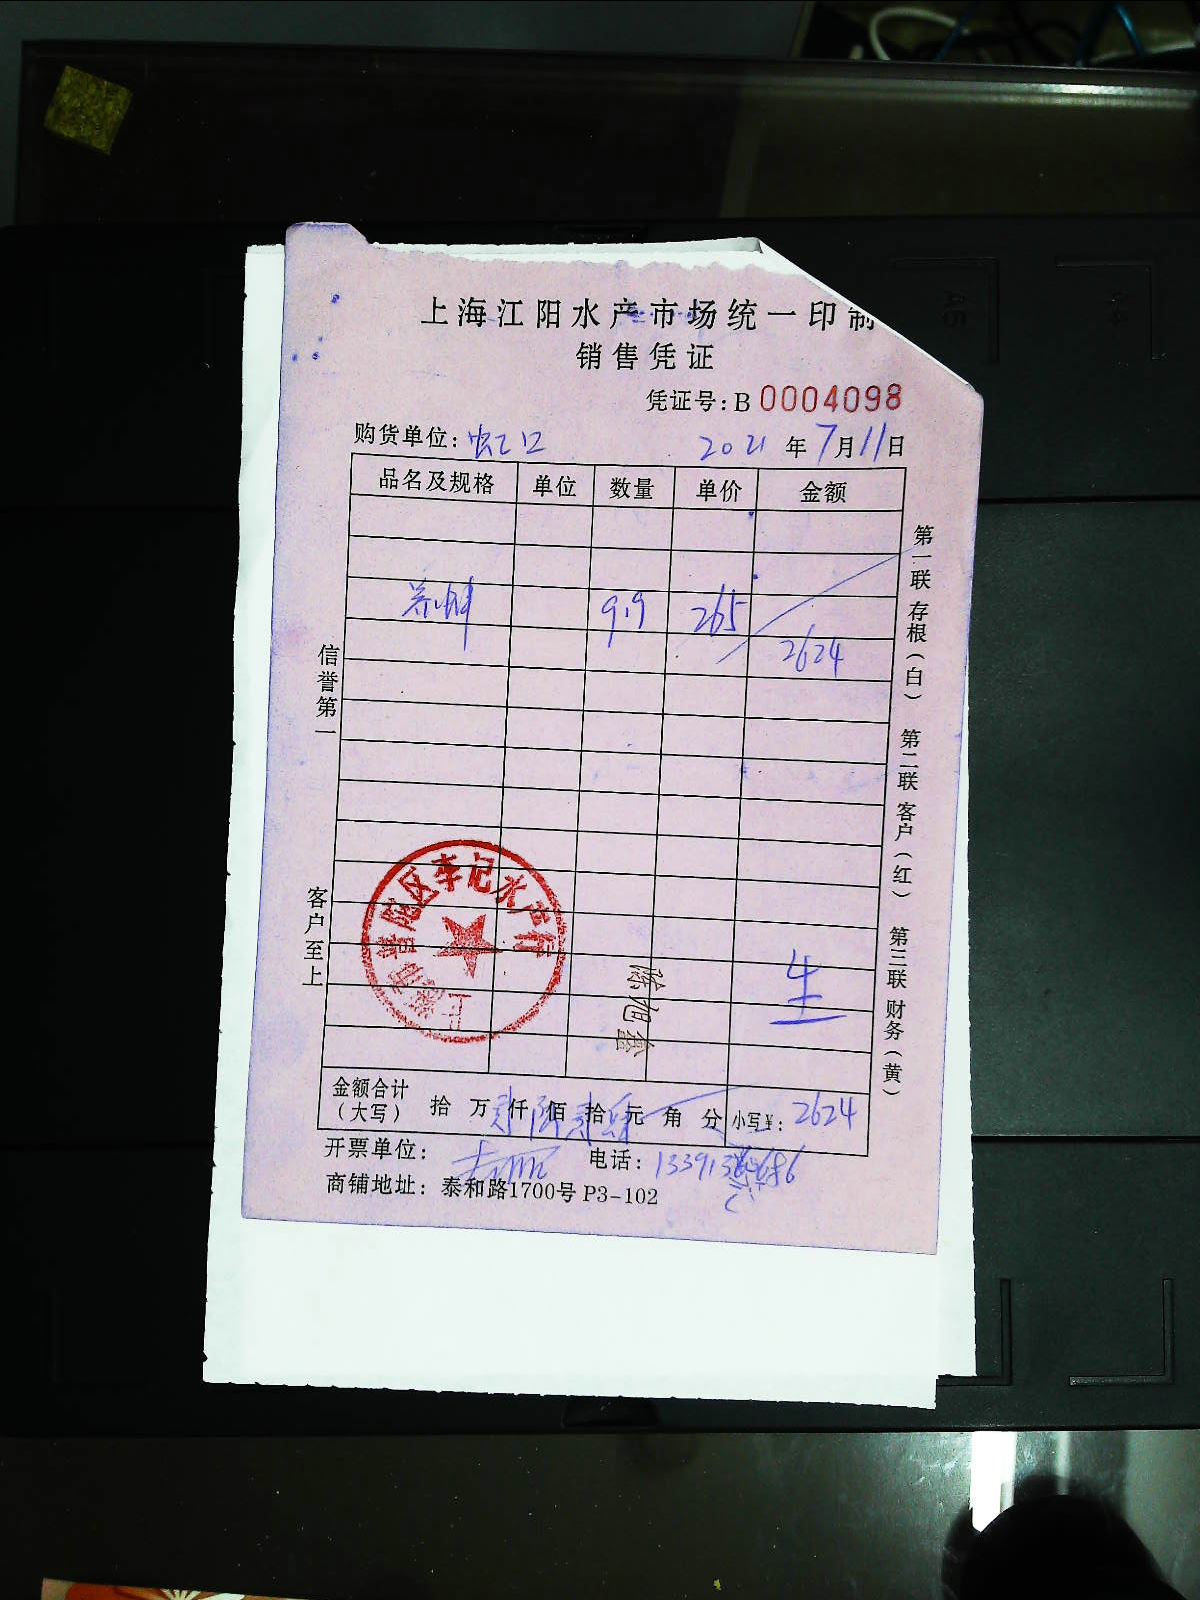 上海江阳水产市场统一印制
销售凭证
凭证号：B 0004098
购货单位：虹口 2021年7月11日
品名及规格 单位 数量 单价 金额
9.9 265
2624
生
金额合计（大写） 拾万贰仟陆佰贰拾肆元角分 小写￥：2624
开票单位： 电话：
商铺地址：泰和路1700号 P3-102
信誉第一
客户至上
第一联 存根（白） 第二联 客户（红） 第三联 财务（黄）
上海市普陀区李记水产行